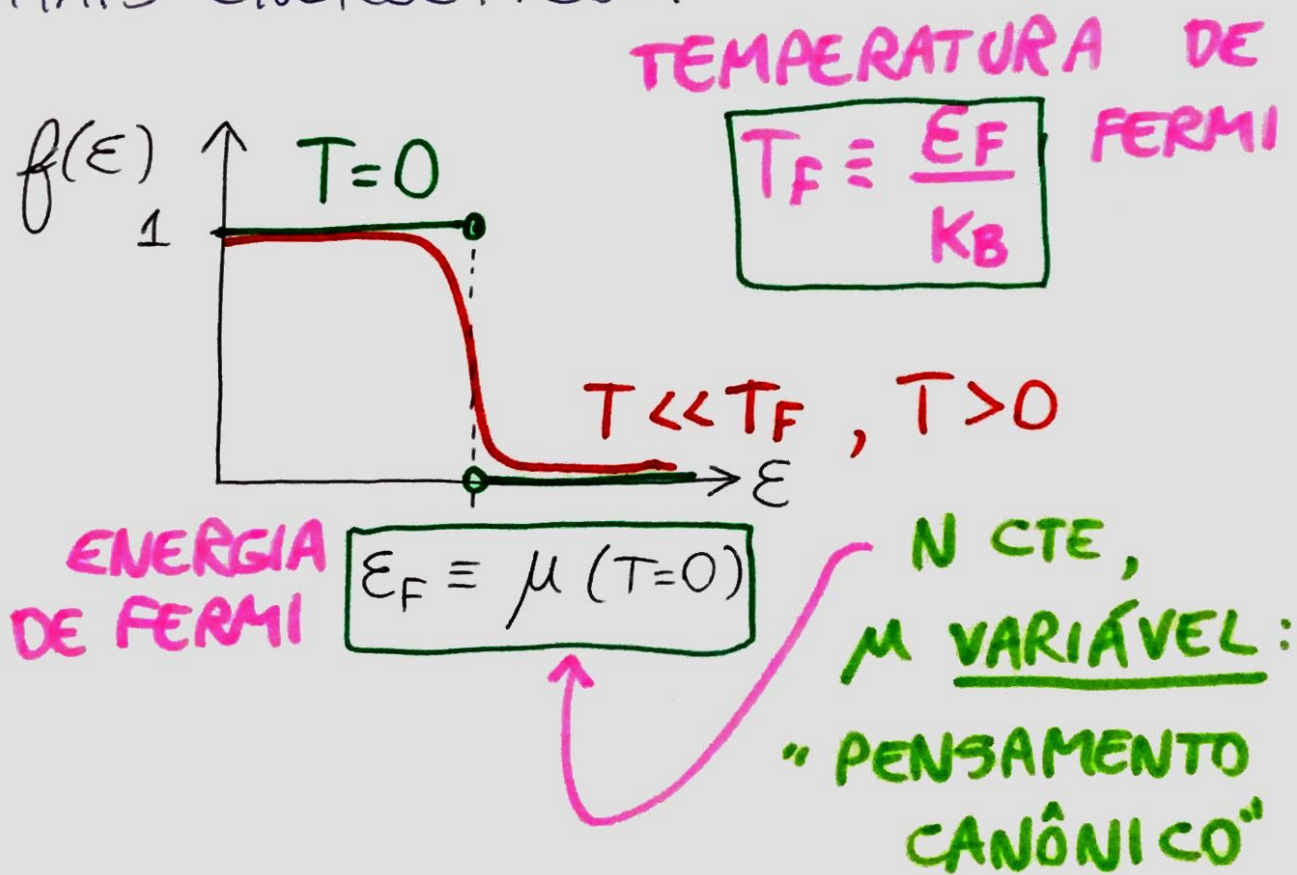 MAIS ENERGÉTICO.
TEMPERATURA DE
FERMI
T_F ≡ ε_F / K_B
f(ε)
1
T=0
T<<T_F , T>0
ε
ENERGIA
DE FERMI
ε_F ≡ μ (T=0)
N CTE,
μ VARIÁVEL:
"PENSAMENTO
CANÔNICO"